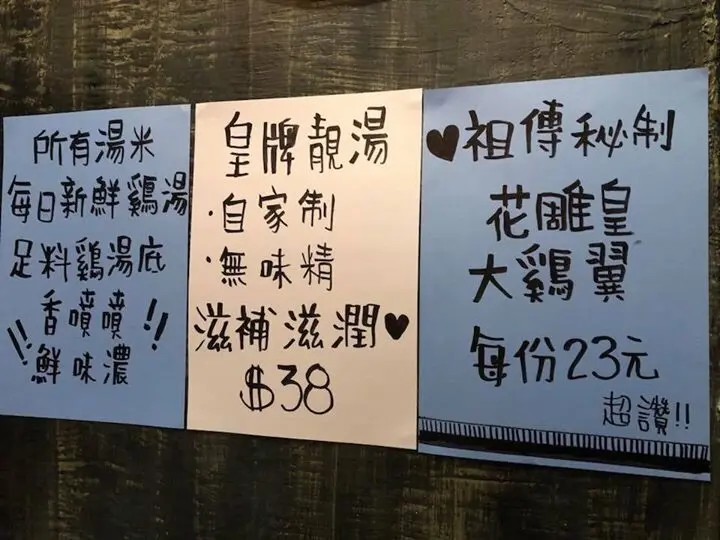 所有湯米
每日新鮮鷄湯
足料鷄湯底
!! 香噴噴 !!
鮮味濃
皇牌靚湯
·自家制
·無味精
滋補滋潤♥
$38
♥祖傳秘制
花雕皇
大鷄翼
每份23元
超讚!!